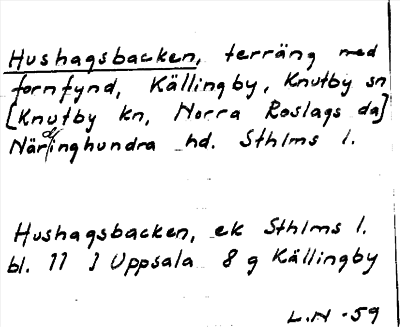 Hushagsbacken, terräng med
fornfynd, Källingby, Knutby sn
[Knutby kn, Norra Roslags da]
Närdinghundra hd. Sthlms l.
Hushagsbacken, ek Sthlms l.
bl. 11 I Uppsala 8 g Källingby
L.N -59